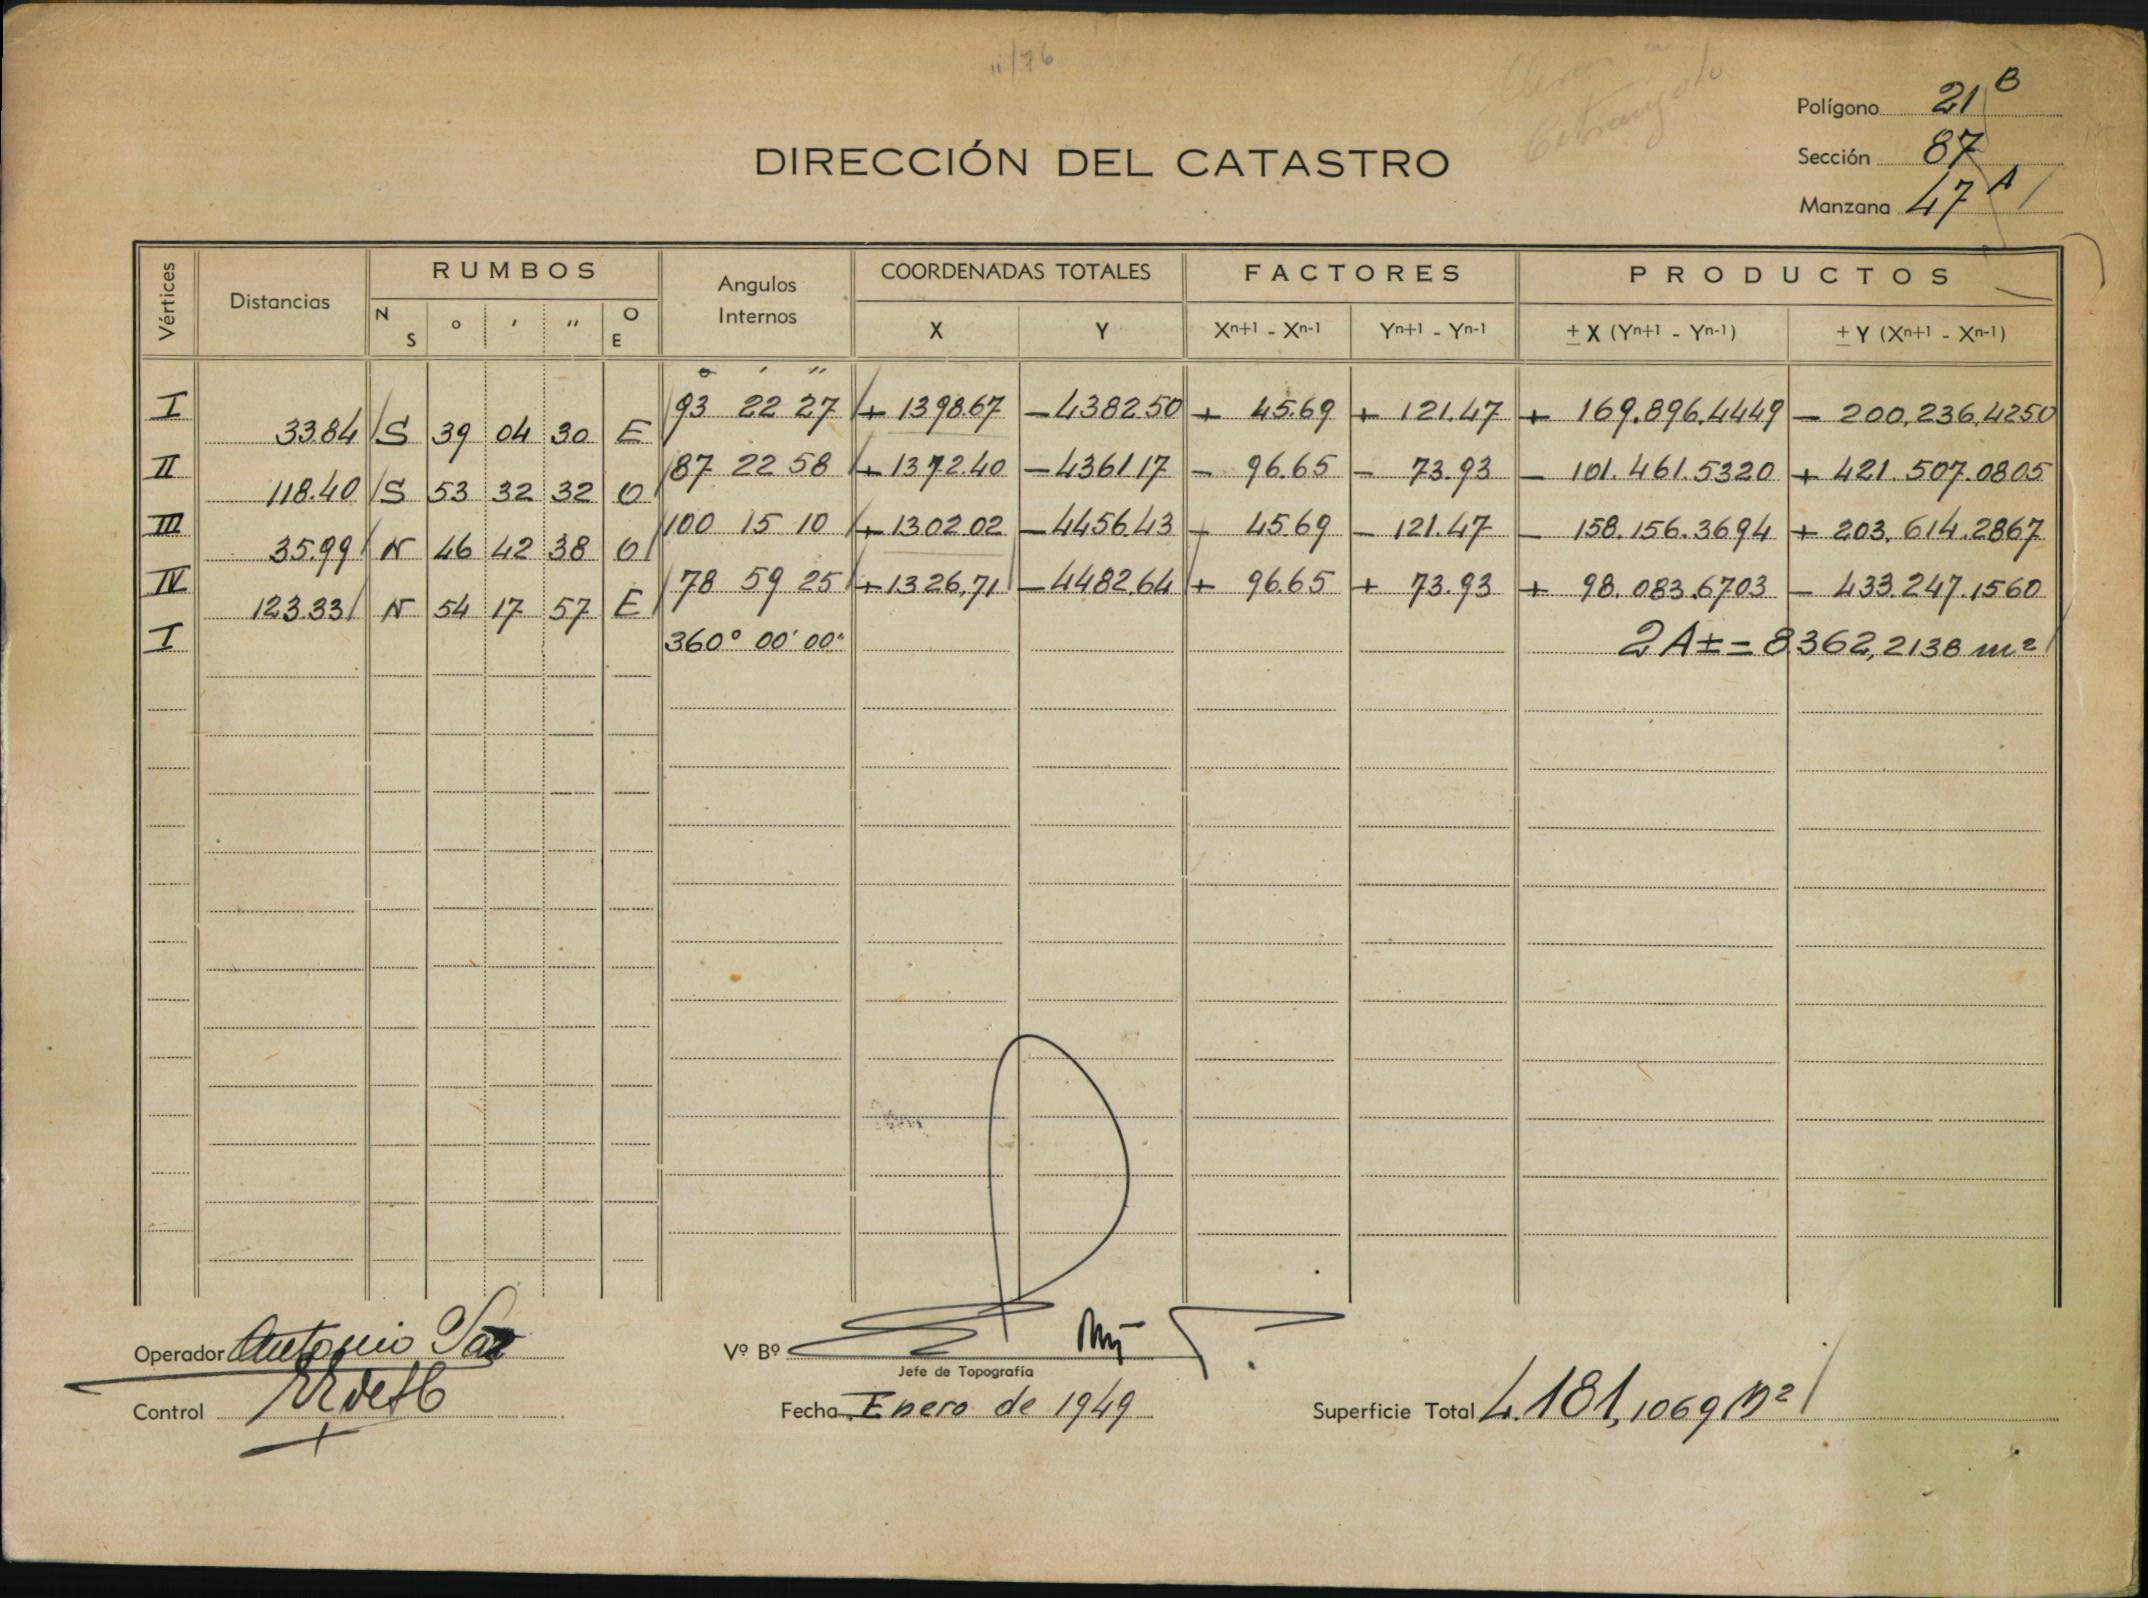 11/76
Polígono 21 B
Sección 87
Manzana 47 A
DIRECCIÓN DEL CATASTRO
Vértices Distancias RUMBOS Angulos Internos COORDENADAS TOTALES FACTORES PRODUCTOS
N S ° ' " O E X Y Xn+1 - Xn-1 Yn+1 - Yn-1 ± X (Yn+1 - Yn-1) ± Y (Xn+1 - Xn-1)
° ' "
I 93 22 27 + 1398.67 - 4382.50 + 45.69 + 121.47 + 169.896.4449 - 200.236.4250
33.84 S 39 04 30 E
II 87 22 58 + 1372.40 - 4361.17 - 96.65 - 73.93 - 101.461.5320 + 421.507.0805
118.40 S 53 32 32 O
III 100 15 10 + 1302.02 - 4456.43 - 45.69 - 121.47 - 158.156.3694 + 203.614.2867
35.99 N 46 42 38 O
IV 78 59 25 + 1326,71 - 4482.64 + 96.65 + 73.93 + 98.083.6703 - 433.247.1560
123.33 N 54 17 57 E
I 360° 00' 00" 2A± = 8.362,2138 m²
Operador Antonio
Vº Bº
Jefe de Topografía
Control
Fecha Enero de 1949
Superficie Total 4.181,1069 m²